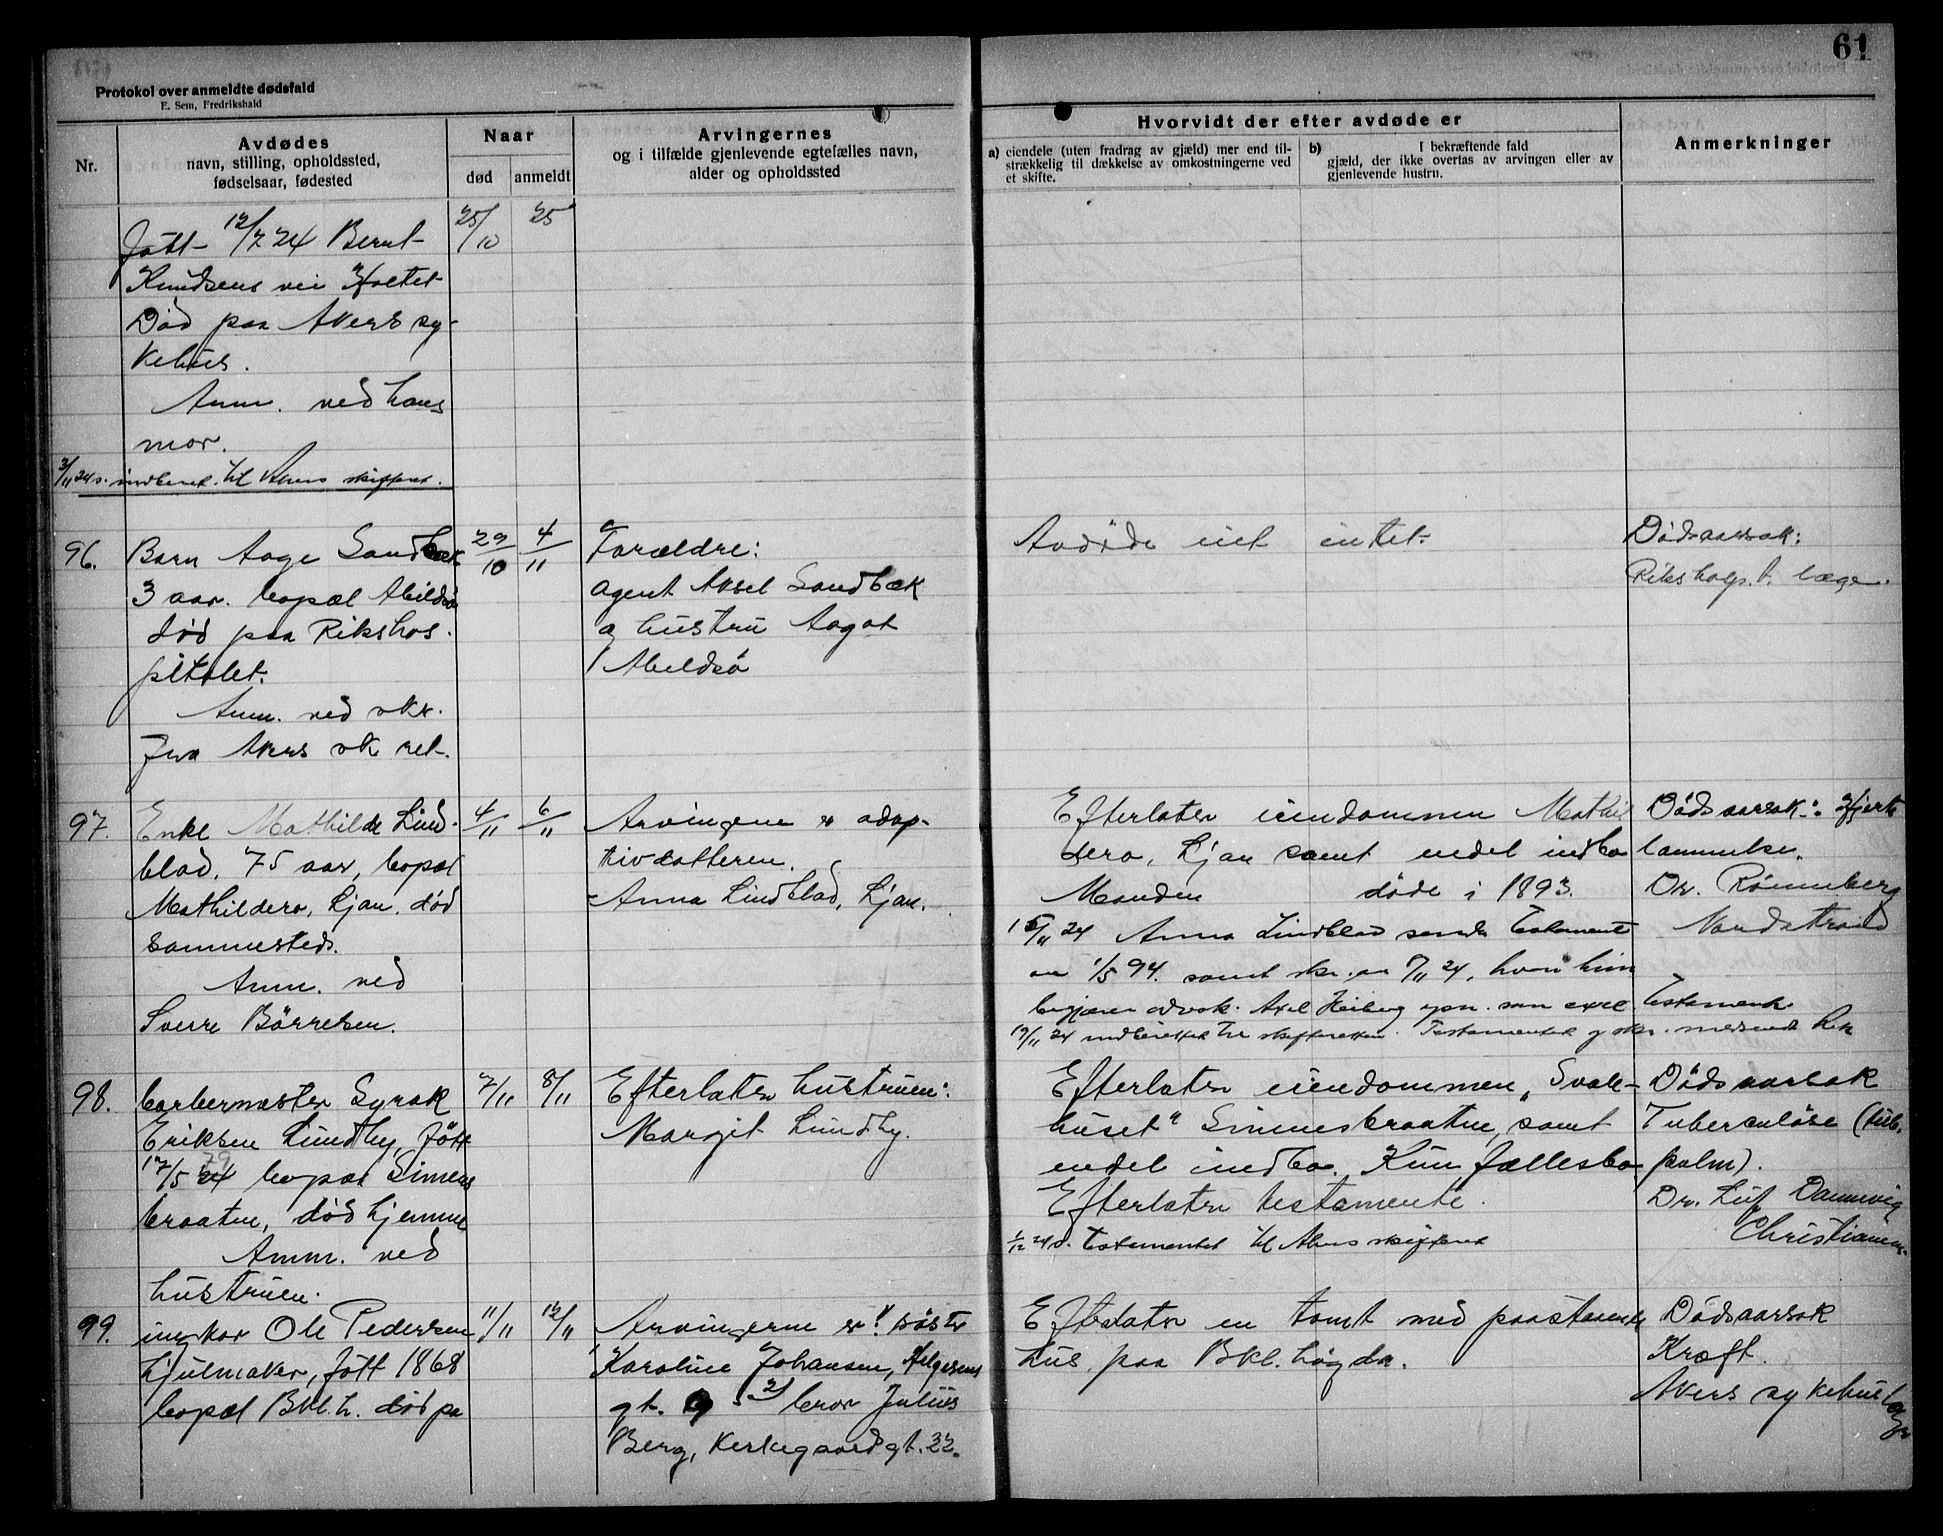 61
Protokol over anmeldte dødsfald
E. Sem, Fredrikshald
Nr.
Avdødes
navn, stilling, opholdssted,
fødselsaar, fødested
Naar
død
anmeldt
Arvingernes
og i tilfælde gjenlevende egtefælles navn,
alder og opholdssted
Hvorvidt der efter avdøde er
a) eiendele (uten fradrag av gjæld) mer end til-
strækkelig til dækkelse av omkostningerne ved
et skifte.
b) I bekræftende fald
gjæld, der ikke overtas av arvingen eller av
gjenlevende hustru.
Anmerkninger
født 12/7 24 Bernt
Knudsens vei Holtet
Død paa Akers sy-
kehus.
Anm. ved hans
mor.
25/10
25
3/11 24 s. indberet. til Akers skifteret.
96.
Barn Aage Sandbæk
3 aar. bopæl Abildsø
død paa Rikshos-
pitalet.
Anm. ved
fra Akers sk ret.
29/10
4/11
Forældre:
agent Aksel Sandbæk
og hustru Aagot
Abildsø
Avdøde eiet intet.
Dødsaarsak:
Rikshosp. t. læge.
97.
Enke Mathilde Lind-
blad. 75 aar, bopæl
Mathildero, Ljan. død
sammesteds.
Anm. ved
Sverre Börresen.
4/11
6/11
Arvingene er adop-
tivdatteren.
Anna Lindblad, Ljan.
Efterlater eiendommen Mathil
dero, Ljan samt endel indbo
Manden døde i 1893.
15/11 24 Anna Lindblad sender Testament
av 1/5 94. samt skr. av 24, hvori hun
begjærer advok. Axel Heiberg opn. som exec. Testamente.
19/11 24 indberettet til skifteretten. Testamentet og skr. medsendt
Dødsaarsak: Hjerte
lammelse.
Dr. Rönneberg
Nordstrand
98.
barbermester Syrak
Eriksen Lundby, født
17/5 79 bopæl Simens
braaten, død hjemme
Anm. ved
hustruen.
7/11
8/11
Efterlater hustruen:
Margit Lundby.
Efterlater eiendommen „Svale-
huset" Simensbraaten, samt
endel indbo. Kun fællesbo
Efterlater testamente.
1/12 24 s. testamentet til Akers skifteret
Dødsaarsak
Tuberculöse (tub.
pulm).
Dr. Leif Dannevig
Christiania.
99.
ungkar Ole Pedersen
hjulmaker, født 1868
bopæl Bkl.h. død pa
11/11
12/11
Arvingerne er: 1) søster
Karoline Johansen, Helgesens
gt. 9 2) bror Julius
Berg, Kirkegaardgt. 32.
Efterlater en tomt med paastaaende
hus, paa Bkl.høgda.
Dødsaarsak
Kræft.
Akers sykehus læge